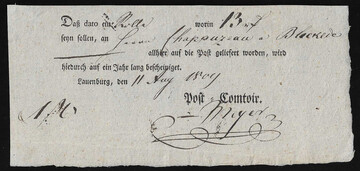 Daß dato ein Rolle worin 13 rf
seyn sollen, an Herrn Chappuzeau a Bleckede
allhier auf die Post geliefert worden, wird
hiedurch auf ein Jahr lang bescheiniget.
Lauenburg, den 11 Aug 1809
Post-Comtoir.
Meyer